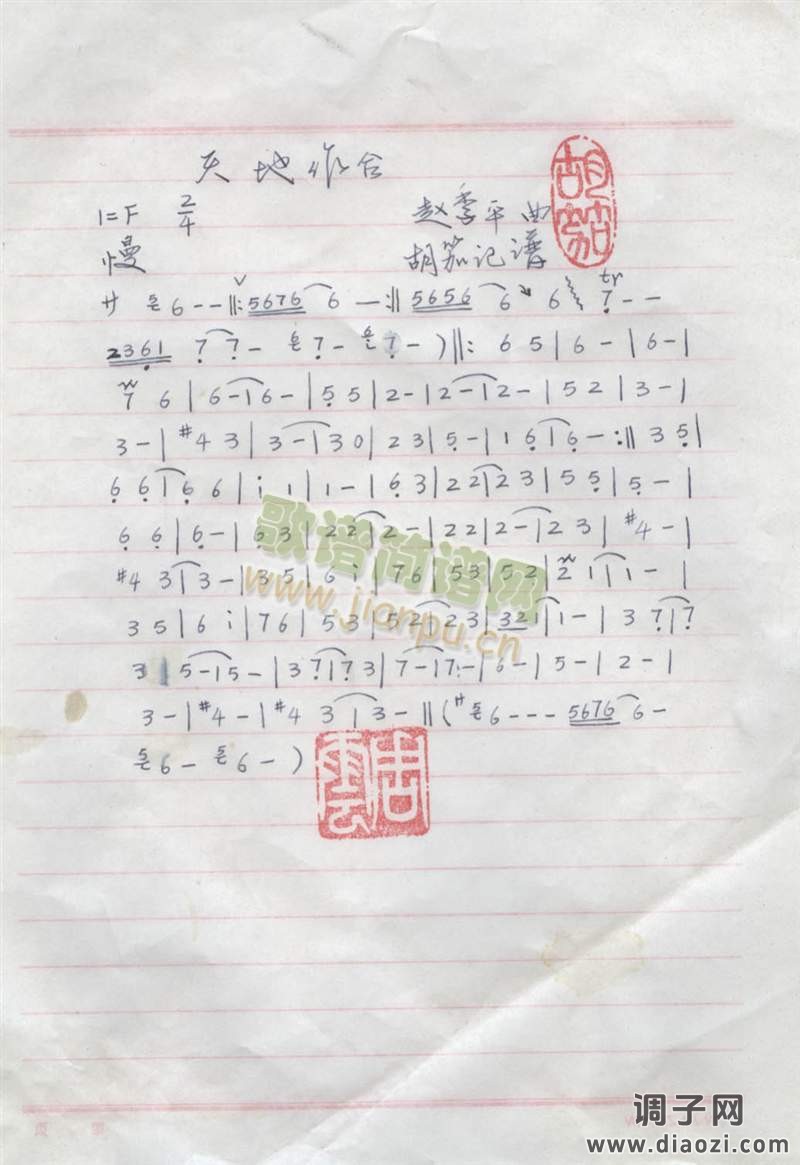 天地作合
1=F 2/4 赵季平曲
慢 胡笳记谱
胡笳
サ 56 - - ‖: 5676 6 — :‖ 5656 6 6 tr 7 - -
2361 7 7 - 67 - 67 - ) ‖: 6 5 | 6 - | 6 - |
7 6 | 6 - | 6 - | 5 5 | 2 - | 2 - | 2 - | 5 2 | 3 - |
3 - | #4 3 | 3 - | 3 0 | 2 3 | 5 - | 1 6 | 6 - :‖ 3 5 |
6 6 | 6 6 | i 1 | 1 - | 6 3 | 2 2 | 2 3 | 5 5 | 5 - |
6 6 | 6 - | 6 3 | 2 2 | 2 - | 2 2 | 2 - | 2 3 | #4 - |
#4 3 | 3 - | 3 5 | 6 i | 7 6 | 5 3 5 2 | 2 1 | 1 - |
3 5 | 6 i | 7 6 | 5 3 | 5 2 | 2 3 | 321 | 1 - | 3 7 | 7
3 | 5 - | 5 - | 3 7 | 7 3 | 7 - | 7 - | 6 - | 5 - | 2 - |
3 - | #4 - | #4 3 | 3 - ‖ ( サ 56 - - - 5676 6 -
56 - 56 - )
歌谱简谱网
www.jianpu.cn
调子网
www.diaozi.com